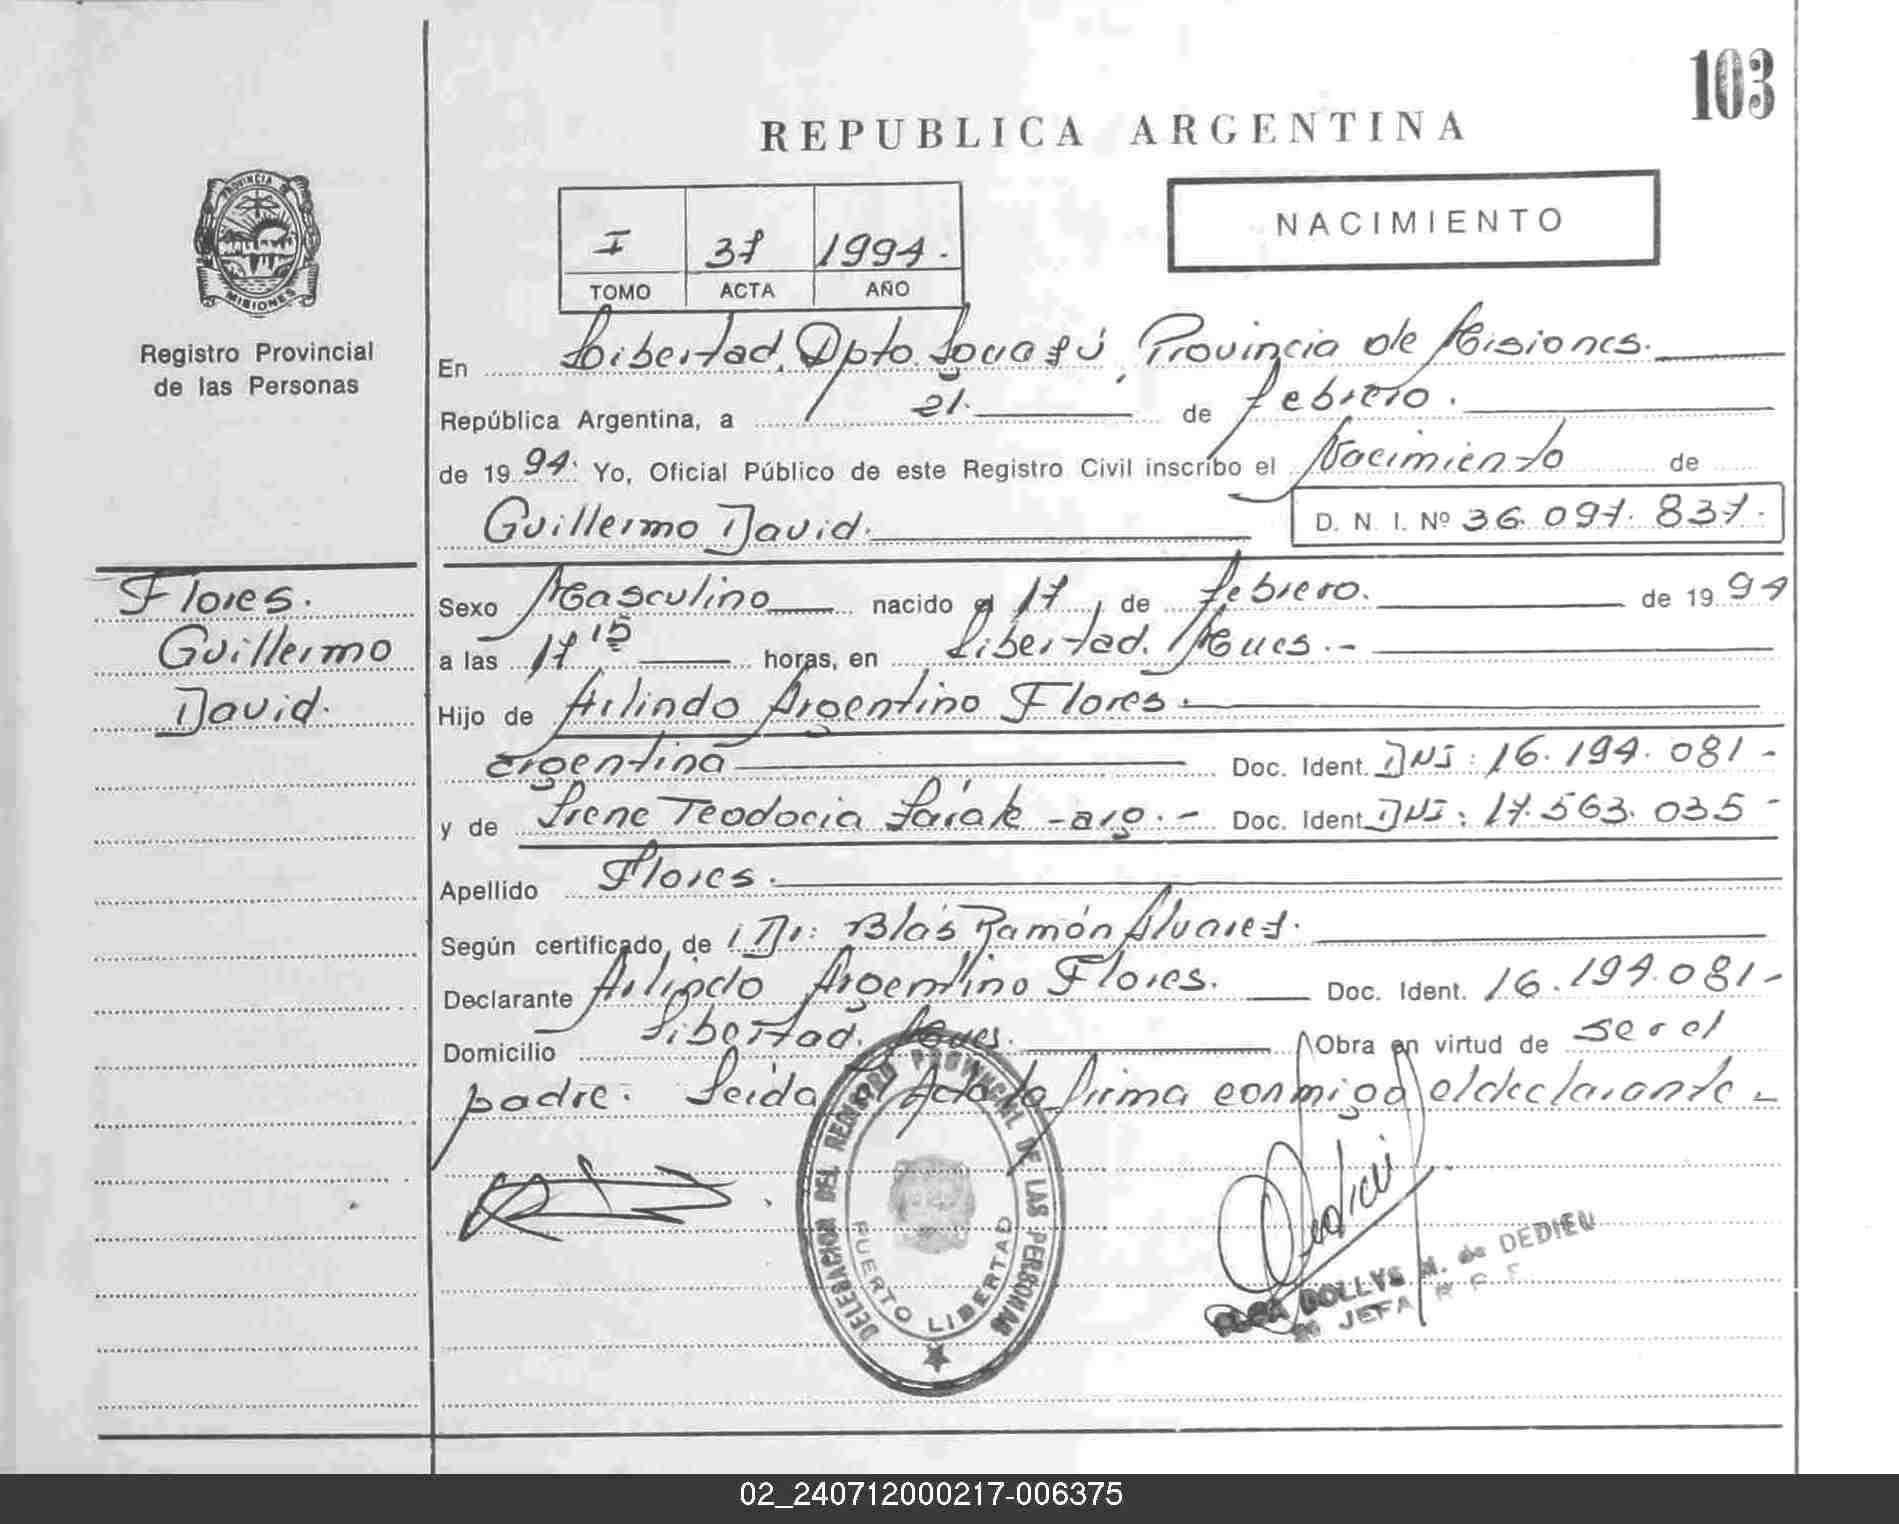 103
REPUBLICA ARGENTINA
PROVINCIA DE
MISIONES
Registro Provincial
de las Personas
NACIMIENTO
I 37 1994.
TOMO ACTA AÑO
En Libertad, Dpto. Iguazú, Provincia de Misiones.
República Argentina, a 21. de febrero.
de 1994. Yo, Oficial Público de este Registro Civil inscribo el Nacimiento de
Guillermo David. D. N. I. Nº 36.097.837.
Flores.
Guillermo
David.
Sexo Masculino nacido el 17 de febrero. de 1994
a las 17 15 horas, en Libertad. Mnes.-
Hijo de Arlindo Argentino Flores.
argentina Doc. Ident. DNI: 16.194.081-
y de Irene Teodocia -arg.- Doc. Ident. DNI: 17.563.035-
Apellido Flores.
Según certificado de: Dr: Blás Ramón Alvarez.
Declarante Arlindo Argentino Flores. Doc. Ident. 16.194.081-
Domicilio Libertad. Mnes. Obra en virtud de ser el
padre. Leida el Acta la firma conmigo el declarante-
DELEGACION DEL REGISTRO PROVINCIAL DE LAS PERSONAS
PUERTO LIBERTAD
DOLLYS N. de DEDIEU
JEFA
02_240712000217-006375